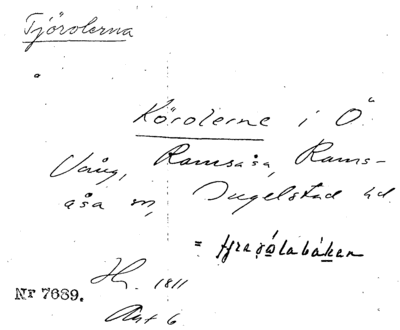 Tjörolerna
Körolerne i Ö
Vång, Ramsåsa, Rams-
åsa m, Ingelstad hd.
=
Nr 7689.
H. 1811
Akt 6